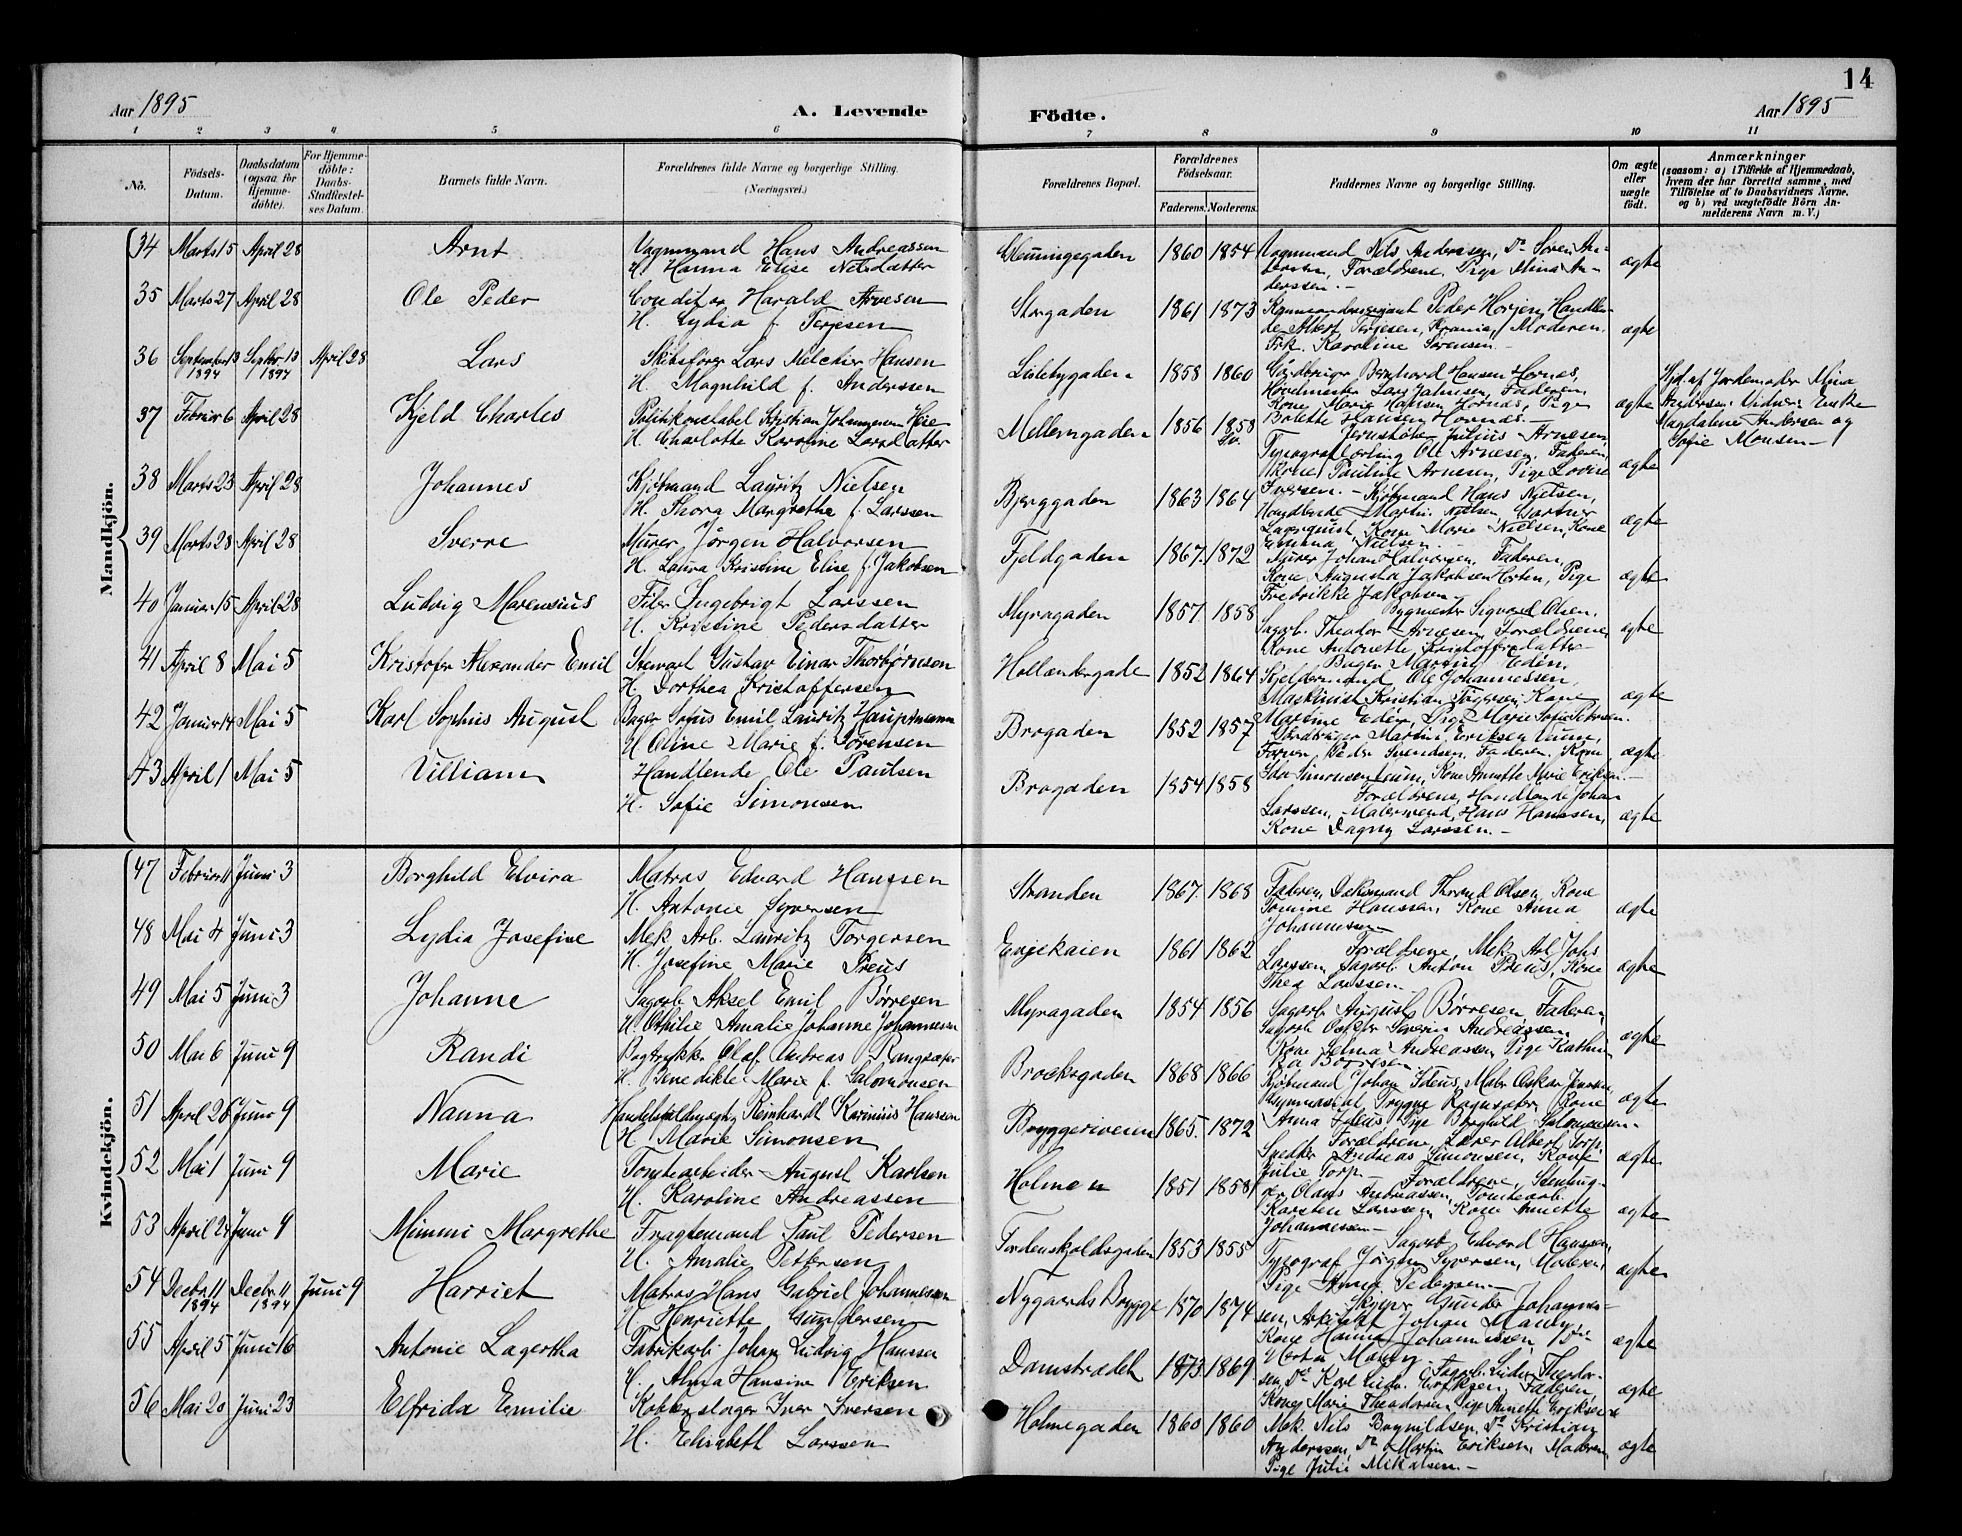 14
Aar 1895 A. Levende Födte. Aar 1895
1 2 3 4 5 6 7 8 9 10 11
Nö. Födsels-Datum. Daabsdatum (ogsaa for Hjemme-döbte). For Hjemme-döbte: Daabs-Stadfæstel-ses Datum. Barnets fulde Navn. Forældrenes fulde Navne og borgerlige Stilling. (Næringsvei.) Forældrenes Bopæl. Forældrenes Födselsaar. Faderens. Moderens. Faddernes Navne og borgerlige Stilling. Om ægte eller uægte födt. Anmærkninger (saasom: a) i Tilfælde af Hjemmedaab, hvem der har forrettet samme, med Tilföielse af to Daabsvidners Navne. og b) ved uægtefödte Börn An-melderens Navn m. V.)
Mandkjön.
34 Marts 15 April 28 Arnt Vognmand Hans Andreassen
H. Hanna Elise Nilsdatter
1860 1854 Vognmand Nils Andersen, Do Søren An-
dersen, Forældrene, Pige Mina An-
derssen.- ægte
35 Marts 27 April 28 Ole Peder Conditor Harald Arnesen
H. Lydia f. Terjesen
Storgaden 1861 1873 Peder Horjen, Handlen-
de Albert Terjesen, Moderen.
Frk. Karoline Sørensen.- ægte
36 September 13 1894 Septbr 13 1894 April 28 Lars Skibsfører Lars Melchior Hansen
H. Magnhild f. Anderssen
1858 1860 Bernhard Hansen Hornæs,
Lars Faderen,
Kone Marie Hansen Hornæs, Pige
Bolette Hansen Hornæs.- ægte
Hjd. af Jordemoder Mina
Andersen. Vidner: Enke
Magdalene Andersen og
Sofie Monsen-
37 Februar 6 April 28 Kjeld Charles Politikonstabel Kristian Johannesen Høie
H. Charlotte Karoline Larsdatter
Mellemgaden 1856 1858
Julius Arnesen,
Typograflærling Ole Arnesen, Faderen,
Kone Pauline Arnesen, Pige Lovise
Iversen.- ægte
38 Marts 23 April 28 Johannes Kjøbmand Lauritz Nielsen
H. Thora Margrethe f. Larssen
Bjerggaden 1863 1864 Kjøbmand Hans Nielsen,
Handlende Martin Nielsen, Gartner
Kone Marie Nielsen, Kone
Emma Nielsen ægte
39 Marts 28 April 28 Sverre Murer Jørgen Halvorsen
H. Laura Kristine Elise f. Jakobsen
Fjeldgaden 1867. 1872 Murer Johan Halvorsen, Faderen,
Kone Augusta Jakobsen Horten, Pige
Fredrikke Jakobsen- ægte
40 Januar 15 April 28 Ludvig Marensius Filer Ingebrigt Larssen
H. Kristine Pedersdatter
Myragaden 1857 1858 Bygmester Sigvard Olsen,
Sagarb. Theodor Arnesen, Forældrene,
Kone Antonette Kristoffersdatter ægte
41 April 8 Mai 5 Kristofer Alexander Emil Stewart Gustav Einar Thorbjørnsen
H. Dorthea Kristoffersen
Hollændergade 1852 1864 Bager Martin Edén,
Ole Johannessen,
Maskinist Kristian Kone
Martine Edén, Pige Marie Sofie Petersen. ægte
42 Januar 14 Mai 5 Karl Sophus August Bager Sofus Emil Lauritz Hauptmann
H. Oline Marie f. Sørensen
Brogaden 1852 1857 Martin Eriksen
Farver Peder Svendsen, Faderen, Kone
Kone Annette Marie Eriksen.- ægte
43 April 1 Mai 5 William Handlende Ole Paulsen
H. Sofie Simonsen
Brogaden 1854 1858 Forældrene, Handlende Johan
Larssen, Malermand Hans Hanssen,
Kone Dagny Larssen.- ægte
Kvindekjön.
47 Februar 11 Juni 3 Borghild Elvira Matros Edvard Hanssen
H. Antonie Syversen
Stranden 1867. 1868 Faderen, Olsen, Kone
Hanssen, Kone Anna
Johannessen- ægte
48 Mai 4 Juni 3 Lydia Josefine Mek. Arb. Lauritz Torgersen
H. Josefine Marie Preus
Enjekaien 1861 1862 Forældrene, Mek. Arb. Johs
Larssen, Sagarb. Anton Preus, Kone
Thea Larssen.- ægte
49 Mai 5 Juni 3 Johanne Sagarb. Aksel Emil Børresen
H. Othilie Amalie Johanne Johannesen
Myragaden 1854 1856 Sagarb. August Børresen, Faderen,
Sagarb. Oskar Severin Andreassen
Kone Selma Andreassen, Pige Kathin-
ka Børresen ægte
50 Mai 6 Juni 9 Randi Bogtrykker Olaf Andreas Rangsæter
H. Benedikte Marie f. Salomonsen
Brocksgaden 1868 1866 Kjøbmand Johan Oskar
Trygve Kone
Anna Pige Borghild Salomonsen.- ægte
51 April 26 Juni 9 Nanna Handelsfuldmægtig Reinhardt Karinius Hanssen
H. Marie Simonsen
Bryggeriveien 1865. 1872 Forældrene, Lærer Albert Torp,
Snedker Andreas Simonsen, Kone
Julie Torp- ægte
52 Mai 1 Juni 9 Marie Tomtearbeider August Karlsen
H. Karoline Andreassen
Holmen 1851 1858 Forældrene, Stenhug-
ger Olaus Andreassen, Tomtearb.
Karsten Larssen, Kone Annette
Johannessen- ægte
53 April 24 Juni 9 Mimmi Margrethe Fragtemand Paul Pedersen
H. Amalie Pettersen
Tordenskjoldsgaden 1853 1855 Sagarb. Edvard Hanssen,
Typograf Jørgen Syversen, Moderen,
Pige Anna Pedersen- ægte
54 Decbr. 11 1894 Decbr. 11 1894 Juni 9 Harriet Matros Hans Gabriel Johannessen
H. Henriette Gundersen
Nygaards Brygge 1870 1874 Skipper Gunder Johannes-
sen, Arkitekt Johan
Kone Hanna Johannessen, ægte
55 April 5 Juni 16 Antonie Lagertha Fabrikarb. Johan Ludvig Hanssen
H. Alma Hansine Eriksen
Damstrædet 1873 1869. Theodor-
sen, Do Karl Ludv. Eriksen, Faderen,
Kone Marie Theodorsen, Pige Annette Eriksen ægte
56 Mai 20 Juni 23 Elfrida Emilie Kobberslager Iver Iversen
H. Elisabeth Larssen
Holmegaden 1860 1860 Mek. Nils Do Kristian
Anderssen, Do Martin Eriksen, Moderen,
Pige Julie Mikalsen.- ægte